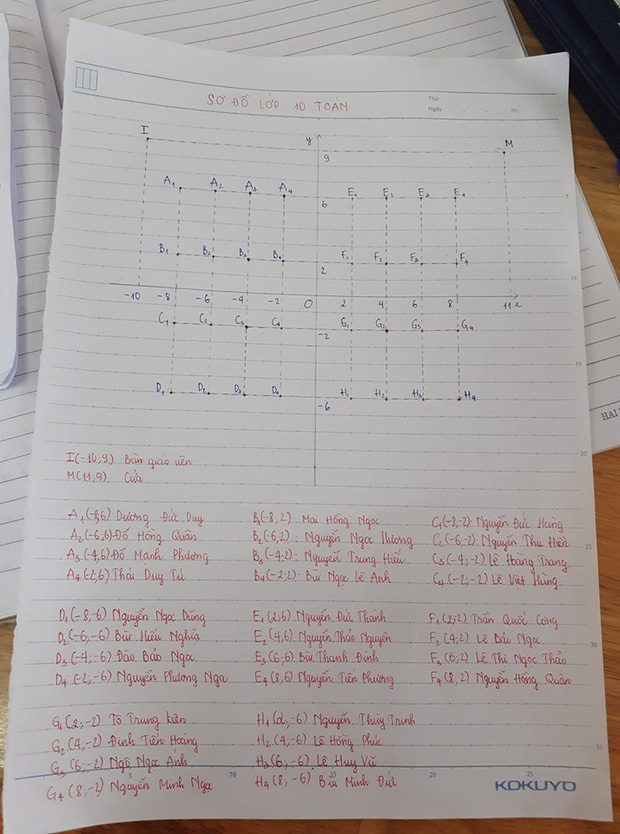 SƠ ĐỒ LỚP 10 TOÁN
Thứ
Ngày No.
I y M
9
A1 A2 A3 A4 E1 E2 E3 E4
6
B1 B2 B3 B4 F1 F2 F3 F4
2
-10 -8 -6 -4 -2 O 2 4 6 8 11 x
C1 C2 C3 C4 G1 G2 G3 G4
-2
D1 D2 D3 D4 H1 H2 H3 H4
-6
I(-10,9) Bàn giáo viên
M(11,9) Cửa
A1(-8,6) Dương Đức Duy
A2(-6,6) Đỗ Hồng Quân
A3(-4,6) Đỗ Mạnh Phương
A4(-2,6) Thái Duy Tú
B1(-8,2) Mai Hồng Ngọc
B2(-6,2): Nguyễn Ngọc Hương
B3(-4,2): Nguyễn Trung Hiếu
B4(-2,2): Bùi Ngọc Lê Anh
C1(-8,-2): Nguyễn Đức Hưng
C2(-6,-2) Nguyễn Thu Hiền
C3(-4,-2) Lê Hoàng Trang
C4(-2,-2) Lê Việt Hùng
D1(-8,-6) Nguyễn Ngọc Dũng
D2(-6,-6) Bùi Hiếu Nghĩa
D3(-4,-6) Đào Bảo Ngọc
D4(-2,-6) Nguyễn Phương Nga
E1(2,6) Nguyễn Đức Thanh
E2(4,6) Nguyễn Thảo Nguyên
E3(6,6) Bùi Thanh Bình
E4(8,6) Nguyễn Tiến Phương
F1(2,2) Trần Quốc Công
F2(4,2) Lê Bảo Ngọc
F3(6,2) Lê Thị Ngọc Thảo
F4(8,2) Nguyễn Hồng Quân
G1(2,-2) Tô Trung Kiên
G2(4,-2) Đinh Tiến Hoàng
G3(6,-2) Ngô Ngọc Anh
G4(8,-2) Nguyễn Minh Ngọc
H1(2,-6) Nguyễn Thùy Trinh
H2(4,-6) Lê Hồng Phúc
H3(6,-6) Lê Huy Vũ
H4(8,-6) Bùi Minh Đức
KOKUYO